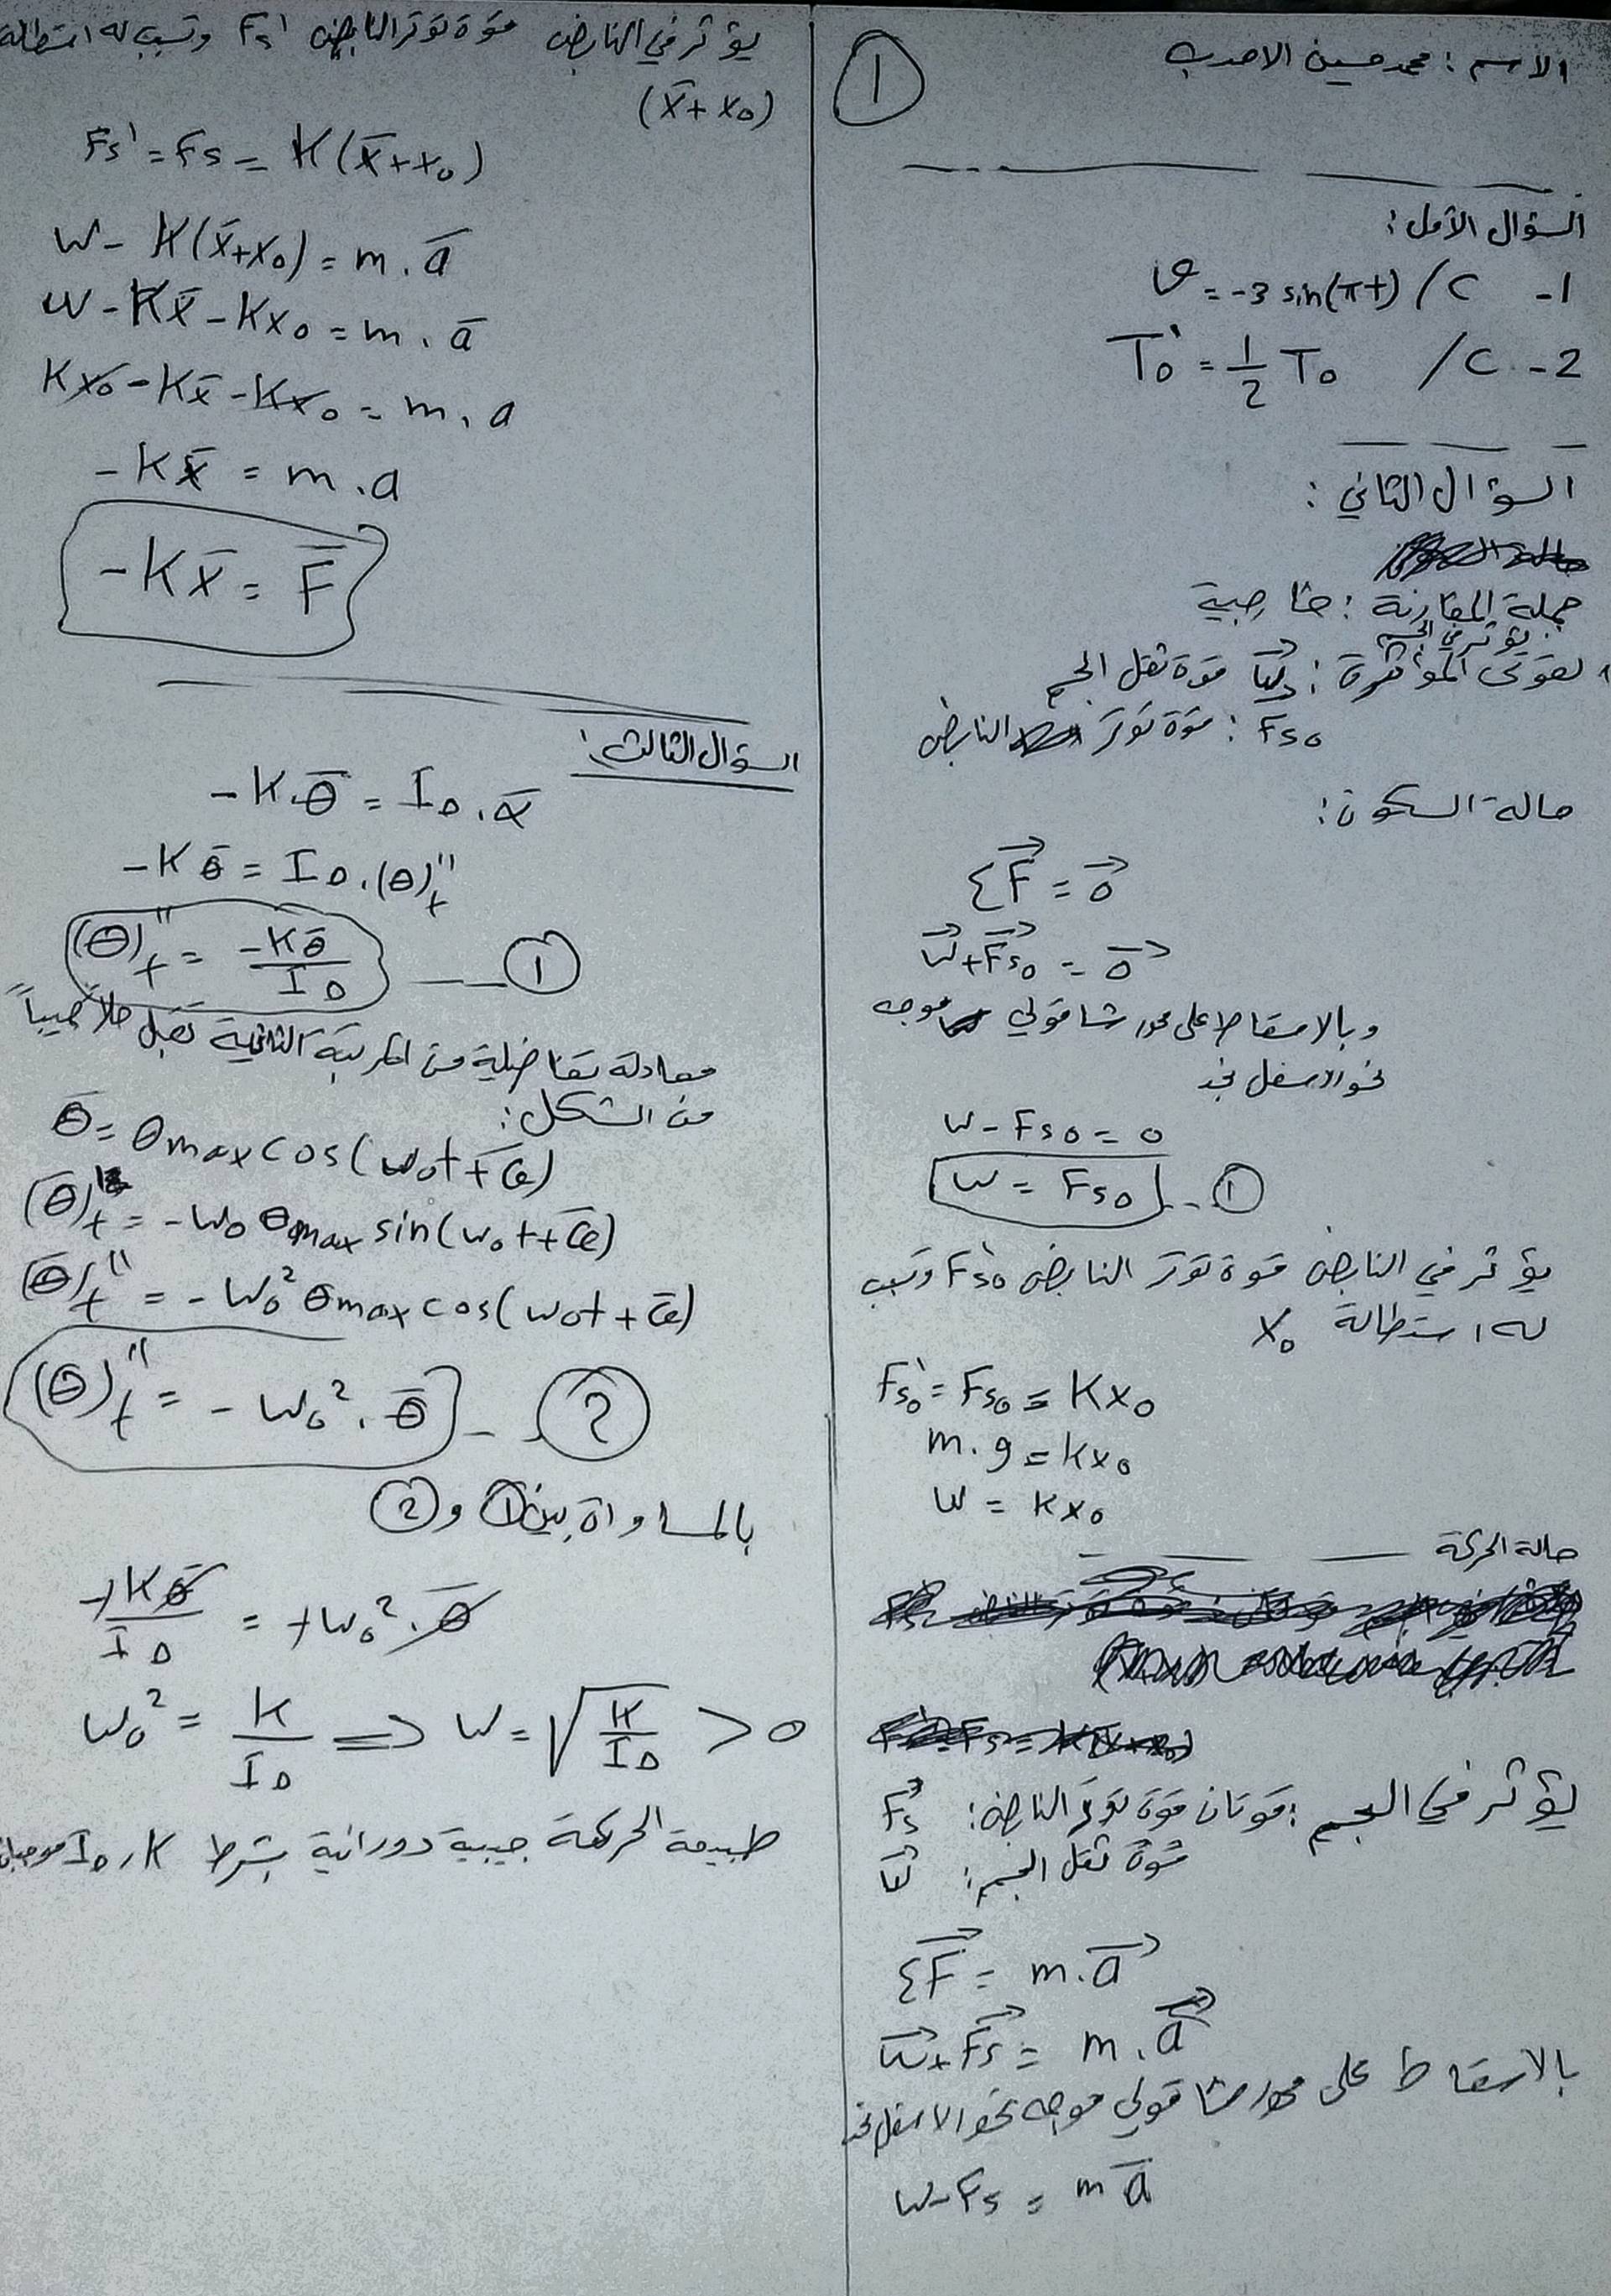 الاسم : محمد حسين الاحدب
1
السؤال الأول :
1- C / v = -3 sin(πt)
2- C / T₀' = 1/2 T₀
السؤال الثاني :
جملة المقارنة : خارجية
يؤثر في الجسم
القوى المؤثرة : W⃗ قوة ثقل الجسم
Fs₀ : قوة توتر النابض
حالة السكون :
ΣF⃗ = 0⃗
W⃗ + F⃗s₀ = 0⃗
وبالاسقاط على محور شاقولي موجه
نحو الاسفل نجد
W - Fs₀ = 0
W = Fs₀ -- ①
يؤثر في النابض قوة توتر النابض Fs₀' وتسبب
له استطالة x₀
Fs₀' = Fs₀ = Kx₀
m . g = kx₀
W = kx₀
حالة الحركة
يؤثر في الجسم : قوتان قوة توتر النابض : F⃗s
قوة ثقل الجسم : W⃗
ΣF⃗ = m . a⃗
W⃗ + F⃗s = m . a⃗
بالاسقاط على محور شاقولي موجه نحو الاسفل نجد
W - Fs = m a̅
يؤثر في النابض قوة توتر النابض Fs' وتسبب له استطالة
(x̅ + x₀)
Fs' = Fs = K(x̅ + x₀)
W - K(x̅ + x₀) = m . a̅
W - Kx̅ - Kx₀ = m . a̅
Kx₀ - Kx̅ - Kx₀ = m . a
-Kx̅ = m . a
-Kx̅ = F̅
السؤال الثالث :
-K . θ̅ = I∆ . α̅
-Kθ̅ = I∆ . (θ)ₜ''
(θ)ₜ'' = -Kθ̅ / I∆ —— ①
معادلة تفاضلية من المرتبة الثانية تقبل حلاً جيبياً
من الشكل :
θ̅ = θmax cos(ω₀t + φ̅)
(θ̅)ₜ' = -ω₀ θmax sin(ω₀t + φ̅)
(θ̅)ₜ'' = -ω₀² θmax cos(ω₀t + φ̅)
(θ)ₜ'' = -ω₀² . θ̅ -- ②
بالمساواة بين ① و ②
+Kθ̅ / I∆ = +ω₀² . θ̅
ω₀² = K / I∆ ⇒ ω = √(K / I∆) > 0
طبيعة الحركة جيبية دورانية بشرط K , I∆ موجبان